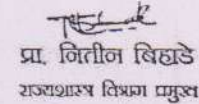 प्रा. नितीन बिहाडे
राज्यशास्त्र विभाग प्रमुख